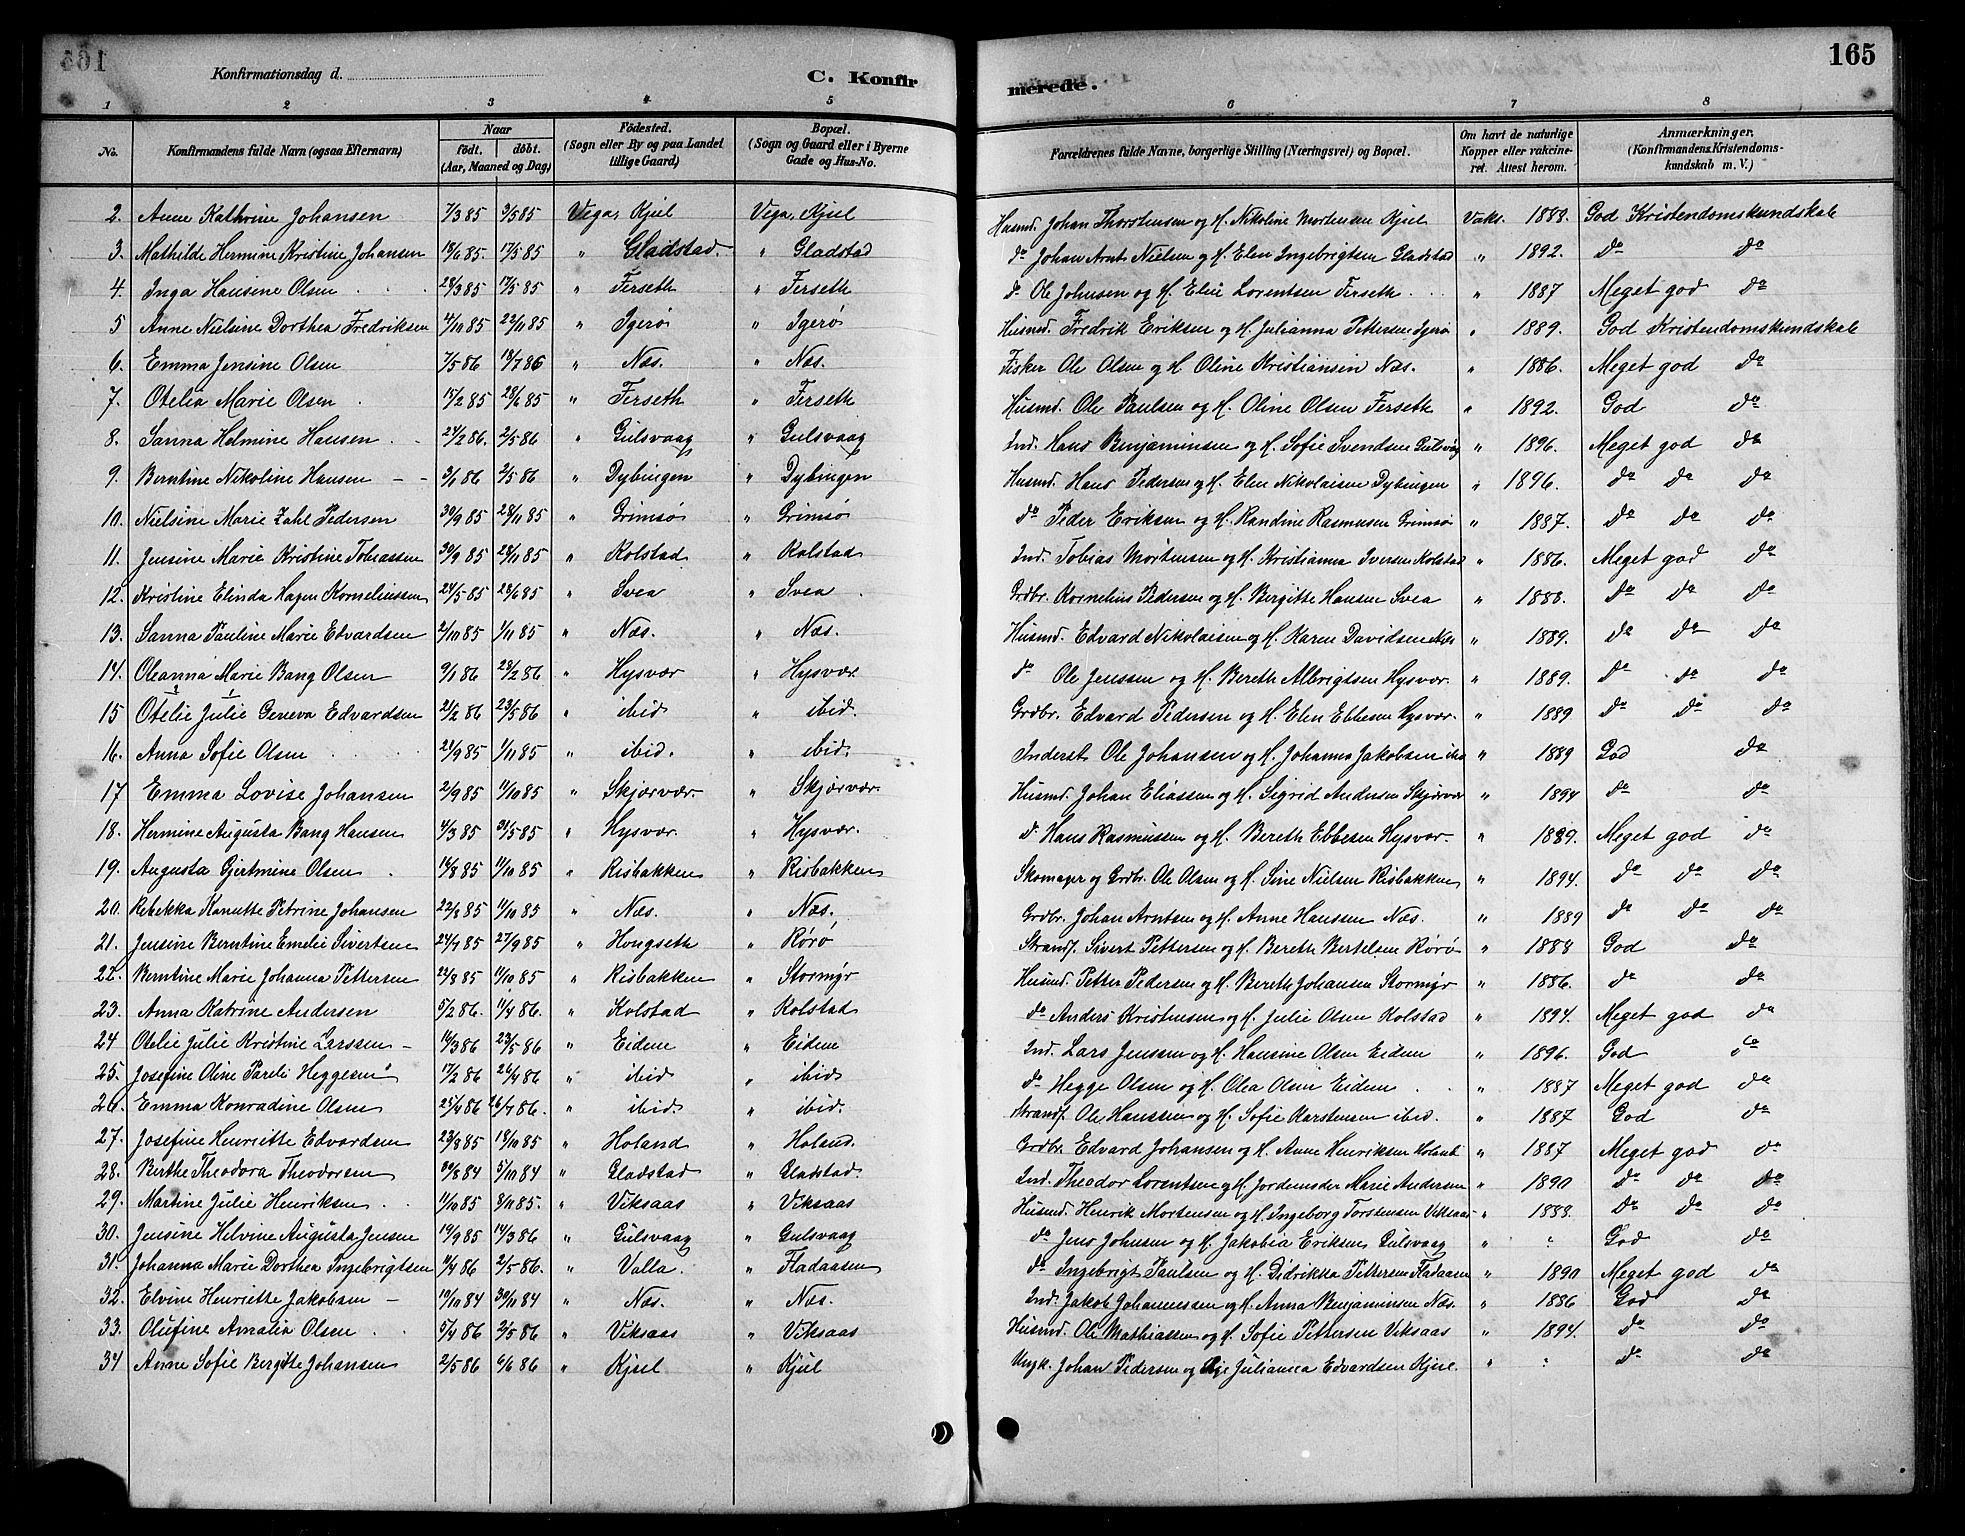 165
Konfirmationsdag d.
C. Konfirmerede.
1 2 3 4 5 6 7 8
No. Konfirmandens fulde Navn (ogsaa Efternavn) Naar født. døbt. (Aar, Maaned og Dag) Fødested. (Sogn eller By og paa Landet tillige Gaard) Bopæl. (Sogn og Gaard eller i Byerne Gade og Hus-No.) Forældrenes fulde Navne, borgerlige Stilling (Næringsvei) og Bopæl. Om havt de naturlige Kopper eller vakcineret. Attest herom. Anmærkninger. (Konfirmandens Kristendomskundskab m. V.)
2. Anne Kathrine Johansen 7/3 85 3/5 85 Vega, Kjul Vega, Kjul Husmd. Johan Thorstensen og H. Nikoline Mortensen Kjul Vaks. 1888. God Kristendomskundskab
3. Mathilde Hermine Kristine Johansen 17/5 85 " Gladstad. " Gladstad do Johan Arnt Nielsen og H. Elen Ingebrigtsen Gladstad " 1892. do do
4. Inga Hansine Olsen 28/3 85 17/5 85 " Ferseth " Ferseth do Ole Johnsen og H. Elie Lorentsen Ferseth " 1887 Meget god do
5 Anne Nielsine Dorthea Fredriksen 4/10 85 22/11 85 " Igerø " Igerø Husmd. Fredrik Eriksen og H. Julianna Pettersen Igerø " 1889. God Kristendomskundskab
6. Emma Jensine Olsen 7/5 86 18/7 86 " Næs. " Næs. Fisker Ole Olsen og H. Oline Kristiansen Næs. " 1886. Meget god do
7. Otelia Marie Olsen 15/2 85 28/6 85 " Ferseth " Ferseth Husmd. Ole Paulsen og H. Oline Olsen Ferseth " 1892. God do
8. Sanna Helmine Hansen 24/2 86. 2/5 86 " Gulsvaag " Gulsvaag Ind. Hans Benjaminsen og H. Sofie Svendsen Gulsvåg " 1896. Meget god do
9. Berntine Nikoline Hansen 3/1 86 2/5 86 " Dybingen " Dybingen Husmd. Hans Pedersen og H. Elen Nikolaisen Dybingen " 1896. do do do
10. Nielsine Marie Zahl Pedersen 30/9 85 28/11 85 " Grimsø " Grimsø do Peder Eriksen og H. Randine Rasmussen Grimsø " 1887. do do do
11. Jensine Marie Kristine Tobiassen 30/9 85 28/11 85 " Kolstad " Kolstad Ind. Tobias Mortensen og H. Kristianna Iversen Kolstad " 1886. Meget god do
12. Kristine Elinda Hagen Korneliussen 24/5 85 28/6 85 " Svea " Svea Grdbr. Kornelius Pedersen og H. Bergitte Hansen Svea " 1888. do do do
13. Sanna Pauline Marie Edvardsen 2/10 85 1/11 85 " Næs. " Næs. Husmd. Edvard Nikolaisen og H. Karen Davidsen Næs " 1889. do do do
14. Oleanna Marie Bang Olsen 9/1 86 28/2 86 " Hysvær " Hysvær do Ole Jenssen og H. Bereth Albrigtsen Hysvær. " 1889. do do do
15 Otelie Julie Geneva Edvardsen 21/2 86 23/5 86 " ibid " ibid. Grdbr. Edvard Pedersen og H. Elen Ebbesen Hysvær. " 1889 do do do
16. Anna Sofie Olsen 21/9 85 1/11 85 " ibid. " ibid. Inderst Ole Johansen og H. Johanna Jakobsen ibd " 1889 God do
17 Emma Lovise Johansen 2/9 85 11/10 85 " Skjærvær " Skjærvær. Husmd. Johan Eliassen og H. Sigrid Andersen Skjærvær " 1894 do do
18. Hermine Augusta Bang Hansen 4/3 85 31/5 85 " Hysvær " Hysvær. do Hans Rasmussen og H. Bereth Ebbesen Hysvær. " 1889. Meget god do
19. Augusta Gjertmine Olsen 14/8 85 11/10 85 " Risbakken " Risbakken Skomager og Grdbr. Ole Olsen og H. Sine Nielsen Risbakken " 1894. do do do
20. Rebekka Kanutte Petrine Johansen 22/8 85 11/10 85 " Næs. " Næs. Grdbr. Johan Arntsen og H. Anne Hansen Næs. " 1889 do do do
21. Jensine Berntine Emelie Sivertsen 24/7 85 27/9 85 " Hongseth " Rørø Strandf. Sivert Pettersen og H. Bereth Bertelsen Rørø " 1888 God do
22. Berntine Marie Johanna Pettersen 22/8 85 11/10 85 " Risbakken " Stormyr Husmd. Petter Pedersen og H. Bereth Johansen Stormyr " 1886. do do
23. Anna Katrine Andersen 5/2 86. 11/4 86. " Kolstad " Kolstad do Anders Kristensen og H. Julie Olsen Kolstad " 1894. Meget god do
24 Otelie Julie Kristine Larssen 14/3 86 23/5 86 " Eidem " Eidem Ind. Lars Jenssen og H. Hansine Olsen Eidem " 1896. God do
25. Josefine Oline Pareli Heggesen 17/2 86 26/4 86 " ibid " ibid do Hegge Olsen og H. Olea Olsen Eidem " 1887 Meget god do
26. Emma Konradine Olsen 25/4 86 26/7 86. " ibid " ibid. Strandf. Ole Hanssen og H. Sofie Karstensen ibid. " 1887 God do
27. Josefine Henriette Edvardsen 23/8 85 18/10 85 " Holand " Holand. Grdbr. Edvard Johansen og H. Anne Henriksen Holand " 1887 Meget god do
28. Berthe Theodora Theodorsen 30/8 84 5/10 84 " Gladstad " Gladstad. Ind. Theodor Lorentsen og H. Jordemoder Marie Andersen " 1890 do do do
29. Martine Julie Henriksen 11/10 85 8/11 85. " Viksaas " Viksaas Husmd. Henrik Mortensen og H. Ingeborg Torstensen Viksaas " 1888. do do do
30. Jensine Helvine Augusta Jensen 14/9 85 14/3 86 " Gulsvaag " Gulsvaag do Jens Johnsen og H. Jakobia Eriksen Gulsvaag " " God do
31. Johanna Marie Dorthea Ingebrigtsen 11/4 86 2/5 86. " Valla. " Fladaasen do Ingebrigt Paulsen og H. Didrikka Pettersen Fladaasen " 1890 Meget god do
32. Elvine Henriette Jakobsen 19/10 84 30/11 84 " Næs. " Næs. Ind. Jakob Johannessen og H. Anna Benjaminsen Næs. " 1886 God do
33. Olufine Amalia Olsen 5/4 86 2/5 86 " Viksaas " Viksaas Husmd. Ole Mathiassen og H. Sofie Pettersen Viksaas " 1894. do do
34 Anne Sofie Bergitte Johansen 2/5 86 6/6 86 " Kjul " Kjul Ungk. Johan Pedersen og Pige Juliansea Edvardsen Kjul. " " do do